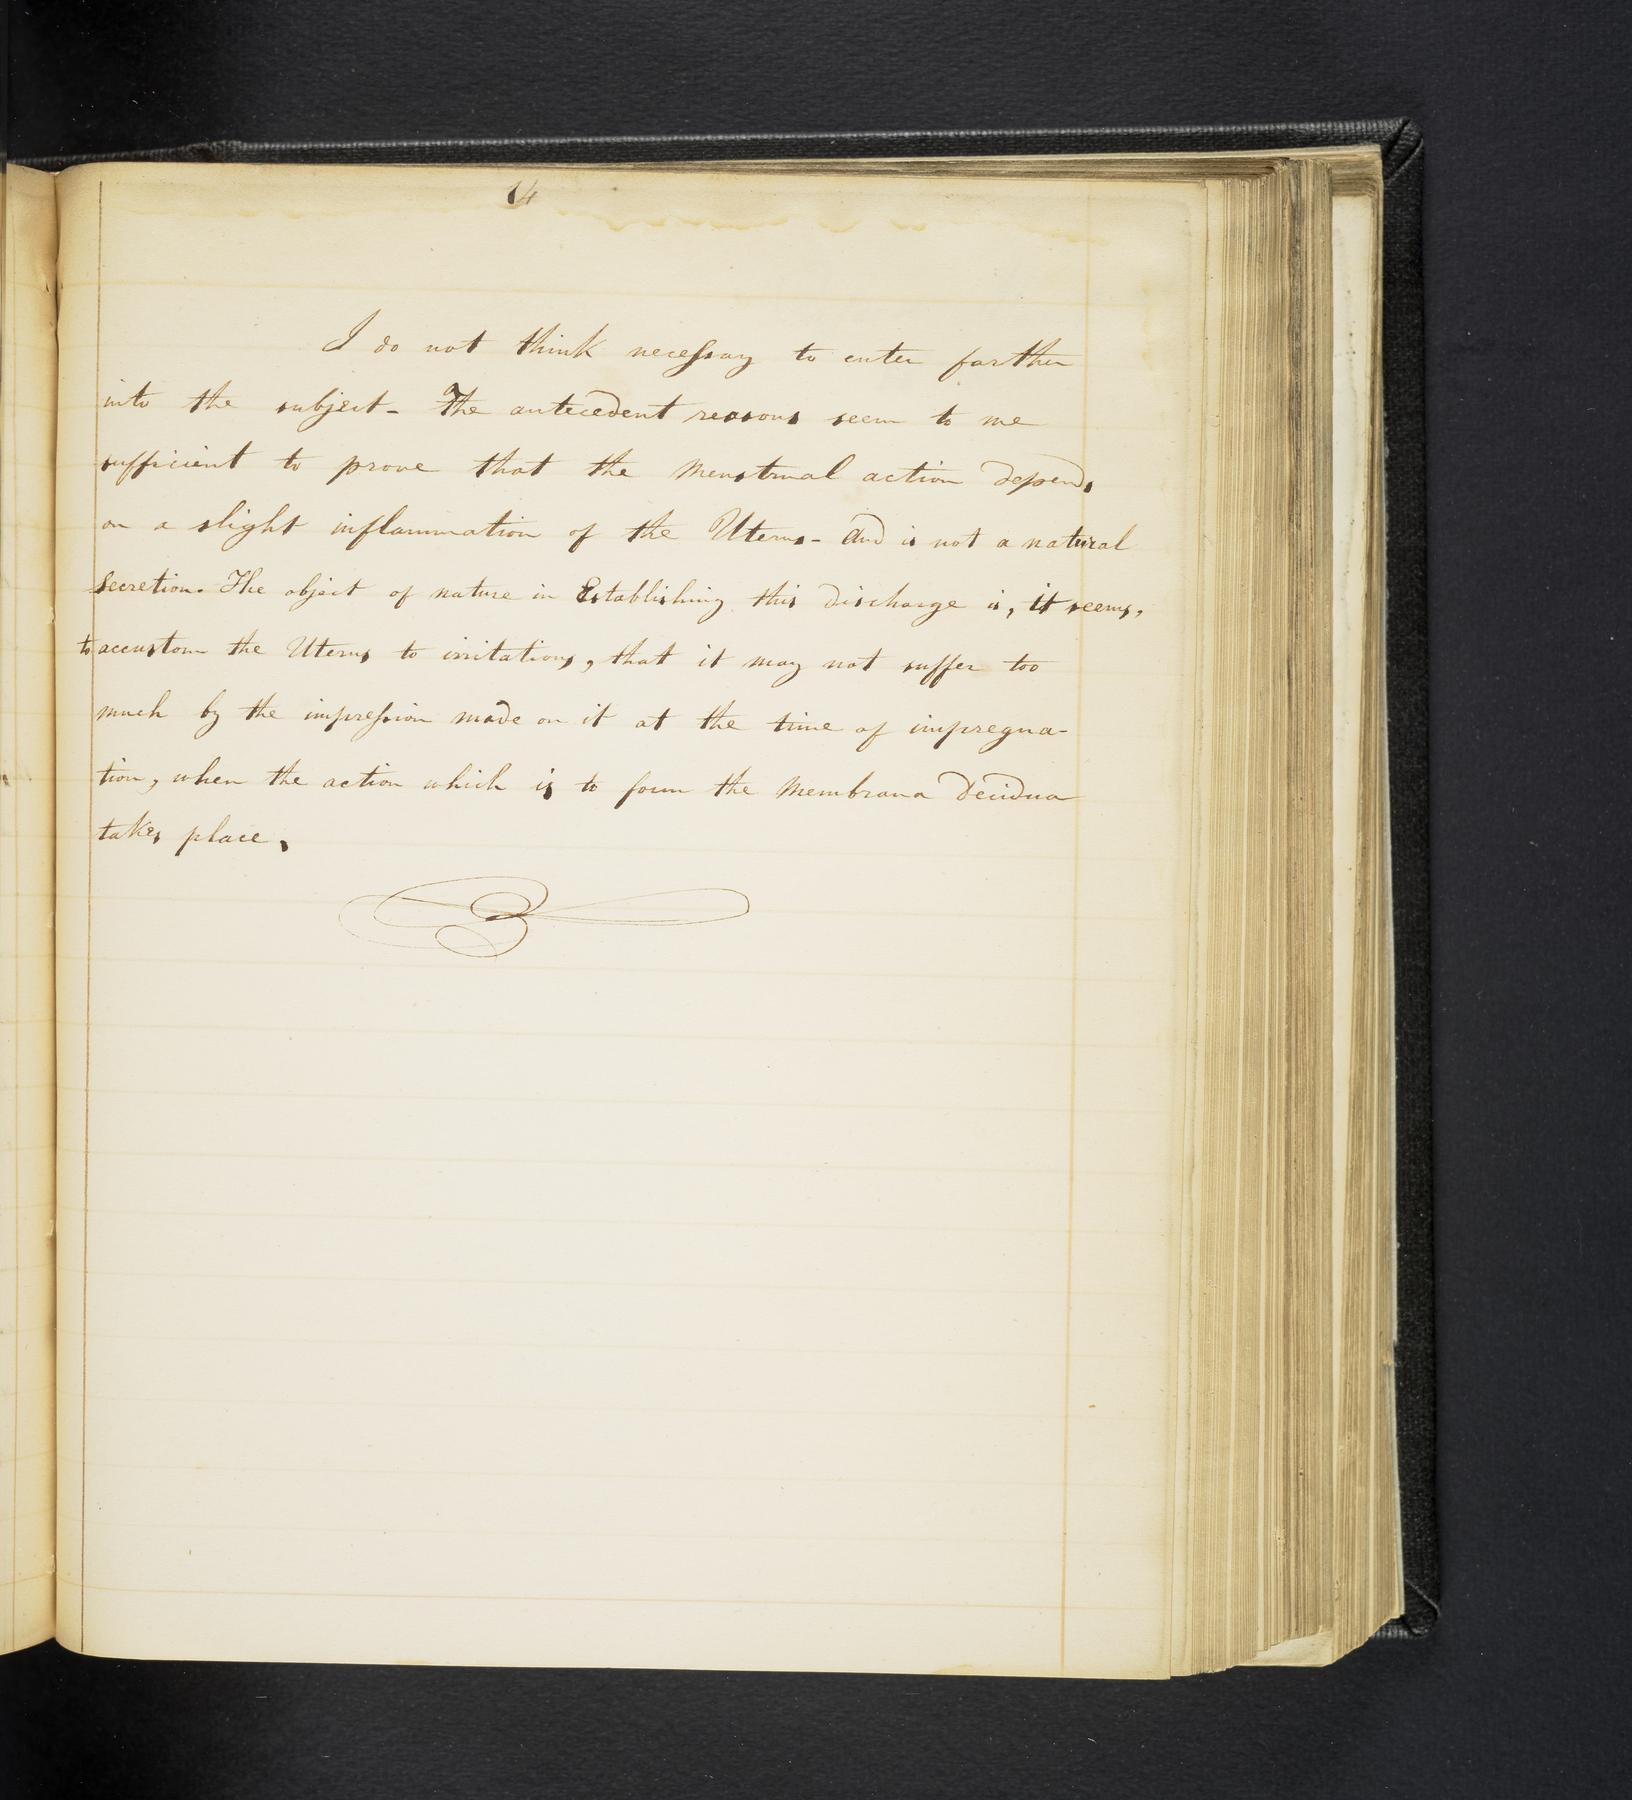 14
I do not think necessay to enter farther
into the subject - The antecedent reasons seem to me
sufficient to prove that the Menstrual action depends
on a slight inflammation of the Uterus - And is not a natural
Secretion. The object of nature in Establishing this discharge is, it seems,
to accustom the Uterus to irritations, that it may not suffer too
much by the impression made on it at the time of impregna-
tion, when the action which is to form the Membrana Decidua
takes place.